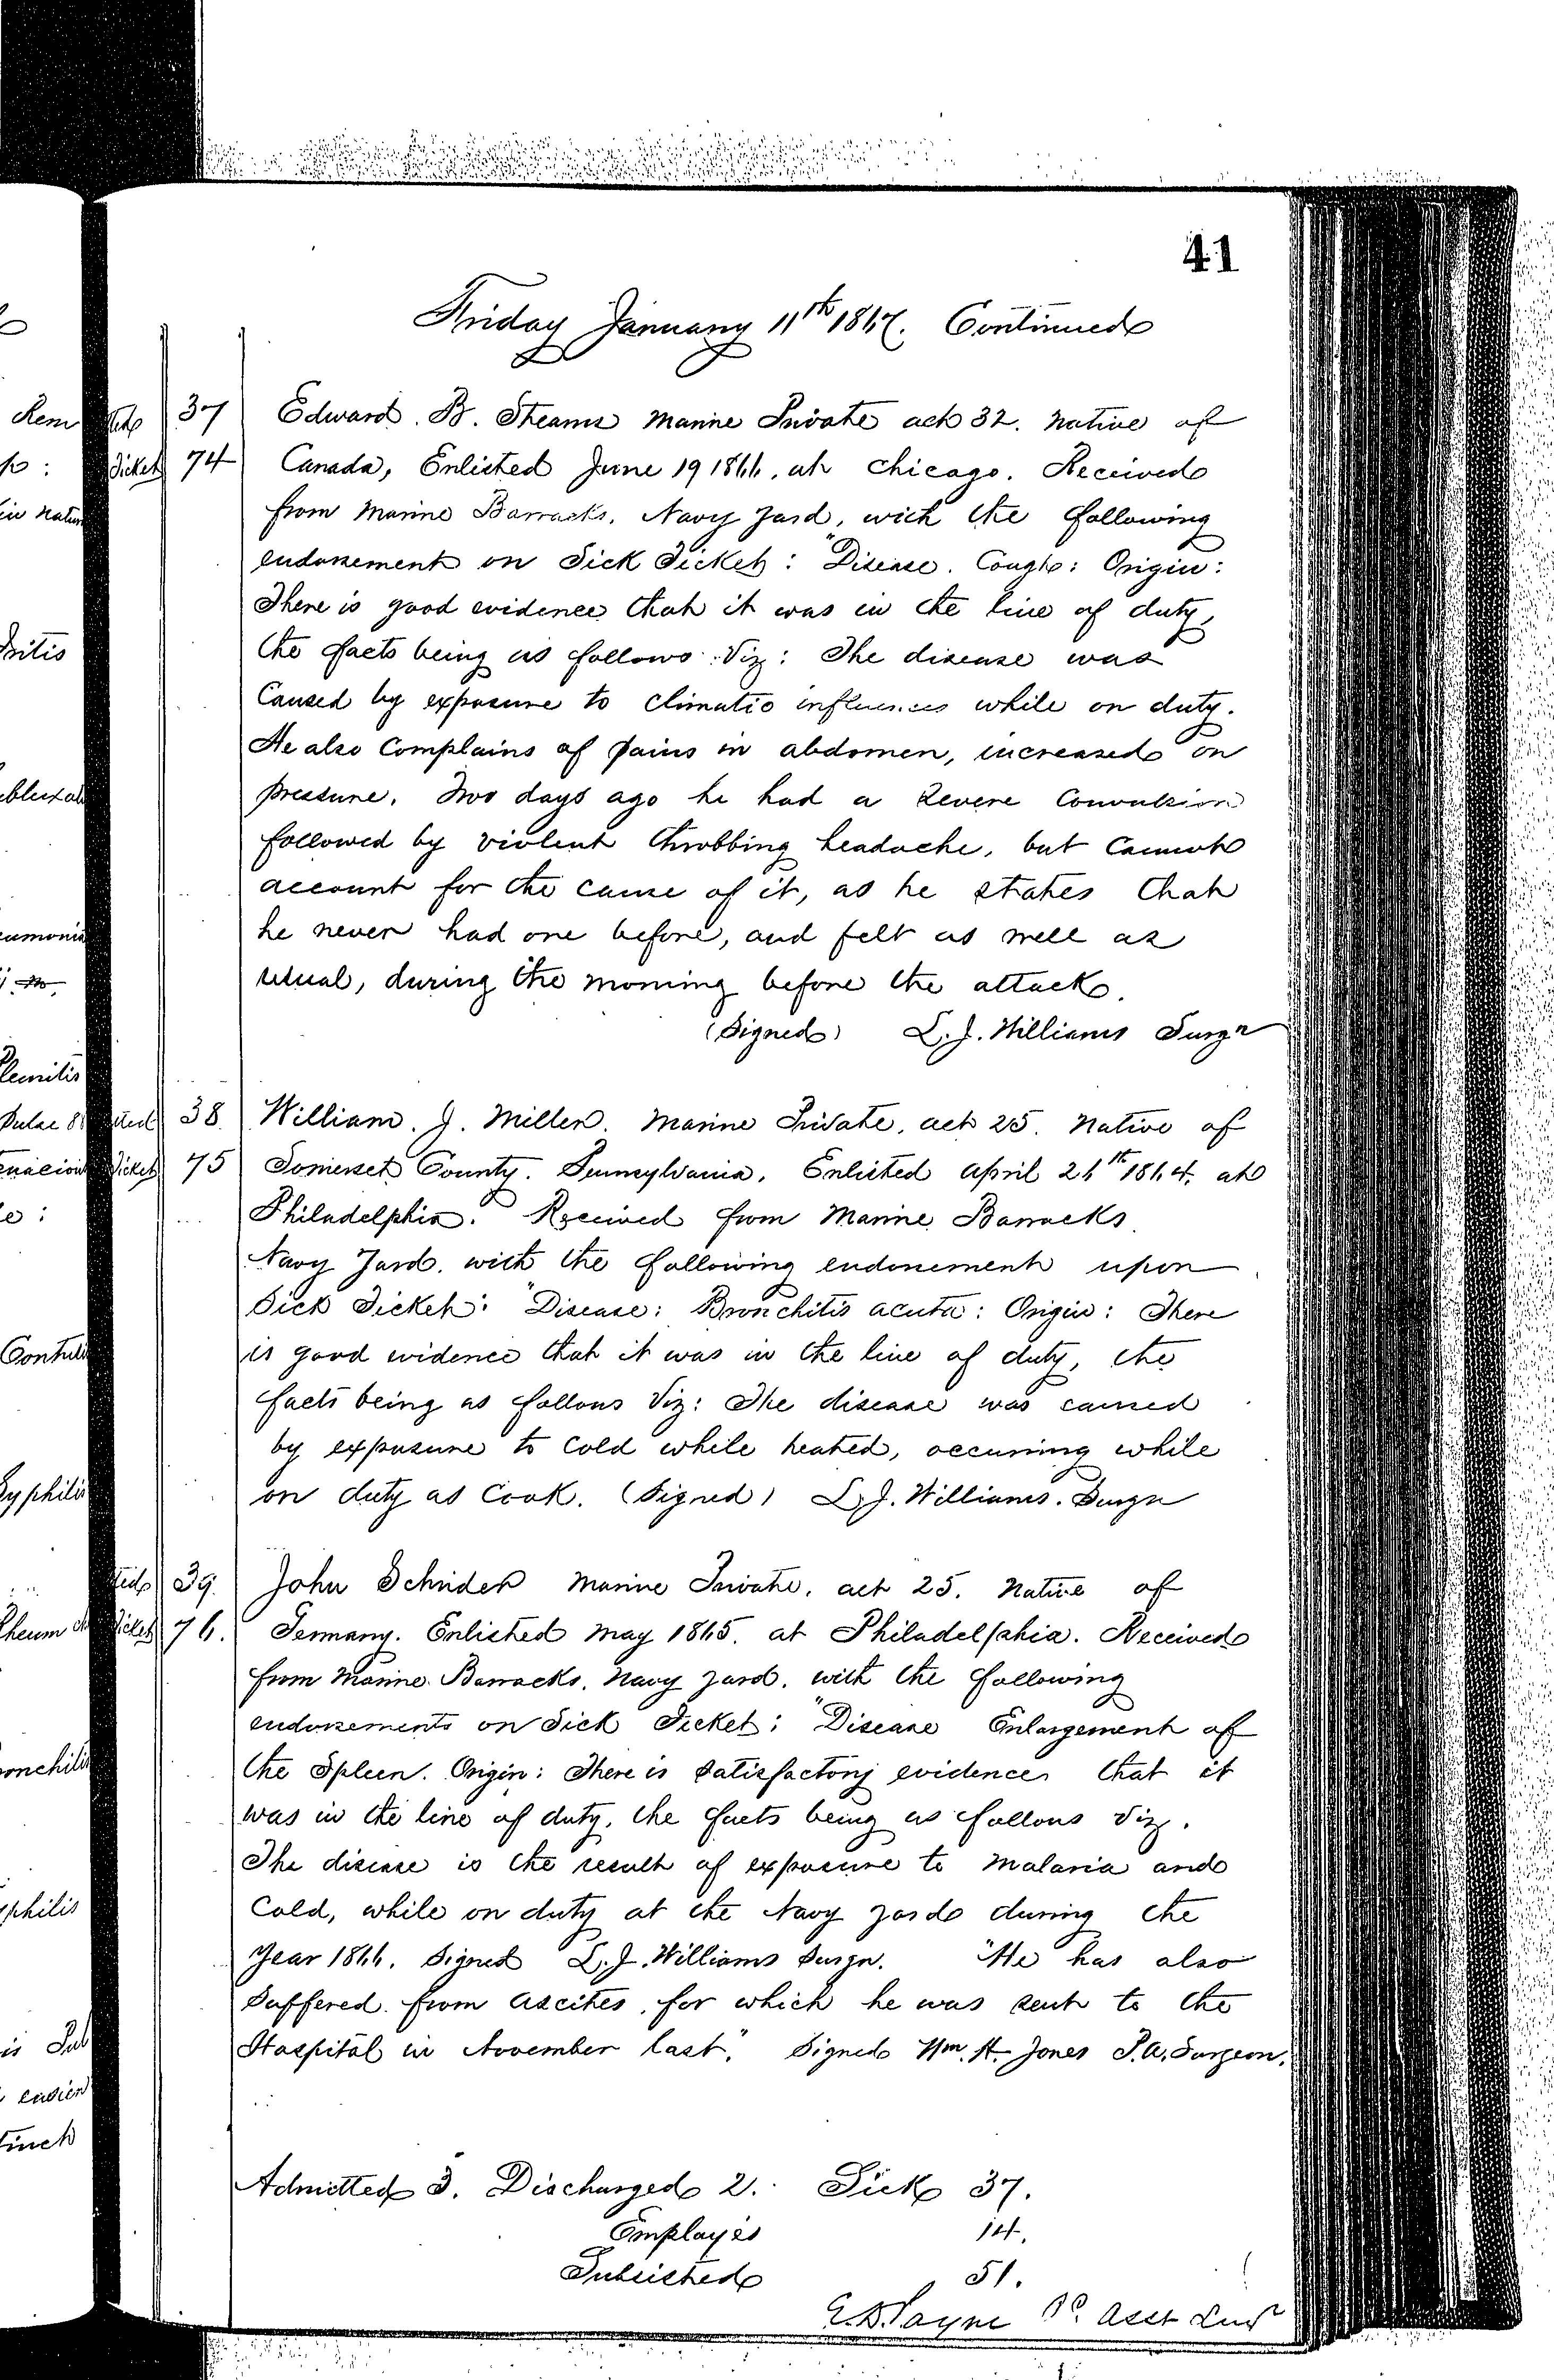 41
Friday January 11th 1867. Continued
37 Edward. B. Stearns Marine Private aet 32. Native of
Ticket 74 Canada, Enlisted June 19 1866. at Chicago. Received
from Marine Barracks. Navy Yard, with the following
endorsement on Sick Ticket: "Disease. Cough: Origin:
There is good evidence that it was in the line of duty,
the facts being as follows Viz: The disease was
Caused by exposure to climatic influences while on duty.
He also Complains of pains in abdomen, increased on
pressure. Two days ago he had a severe Convulsion
followed by violent throbbing headache, but Cannot
account for the cause of it, as he states that
he never had one before, and felt as well as
usual, during the morning before the attack.
(Signed) L. J. Williams Surgn
38 William. J. Miller. Marine Private, aet 25. Native of
Ticket 75 Somerset County. Pennsylvania. Enlisted April 26th 1864. at
Philadelphia. Received from Marine Barracks
Navy Yard. with the following endorsement upon
Sick Ticket: "Disease: Bronchitis acuta: Origin: There
is good evidence that it was in the line of duty, the
facts being as follows Viz: The disease was caused
by exposure to Cold while heated, occurring while
on duty as Cook. (Signed) L. J. Williams. Surgn
39. John Schrider Marine Private, aet 25. Native of
Ticket 76. Germany. Enlisted May 1865. at Philadelphia. Received
from Marine Barracks. Navy Yard. with the following
endorsements on Sick Ticket: "Disease Enlargement of
the Spleen. Origin: There is satisfactory evidence that it
was in the line of duty. the facts being as follows Viz.
The disease is the result of exposure to Malaria and
Cold, while on duty at the Navy Yard during the
Year 1866. Signed L. J. Williams Surgn. "He has also
suffered from ascites, for which he was sent to the
Hospital in November last." Signed Wm. H. Jones P. A. Surgeon.
Admitted 3. Discharged 2. Sick 37.
Employés 14.
Subsisted 51.
E. D. Payne Pd. Asst Sur